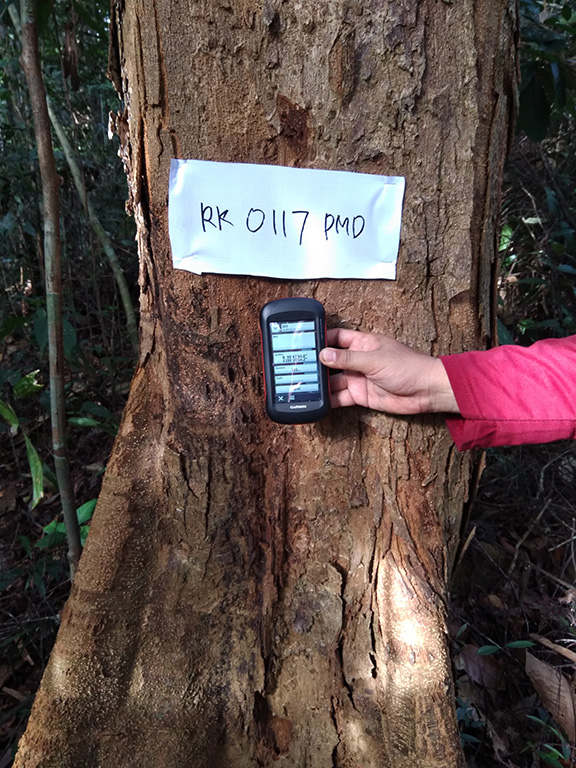 RK 0117 PMD
GARMIN